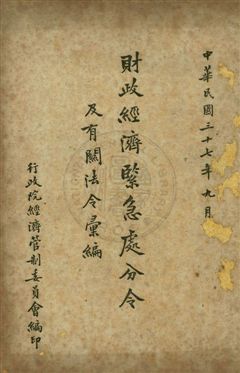 中華民國三十七年九月
財政經濟緊急處分令
及有關法令彙編
行政院經濟管制委員會編印